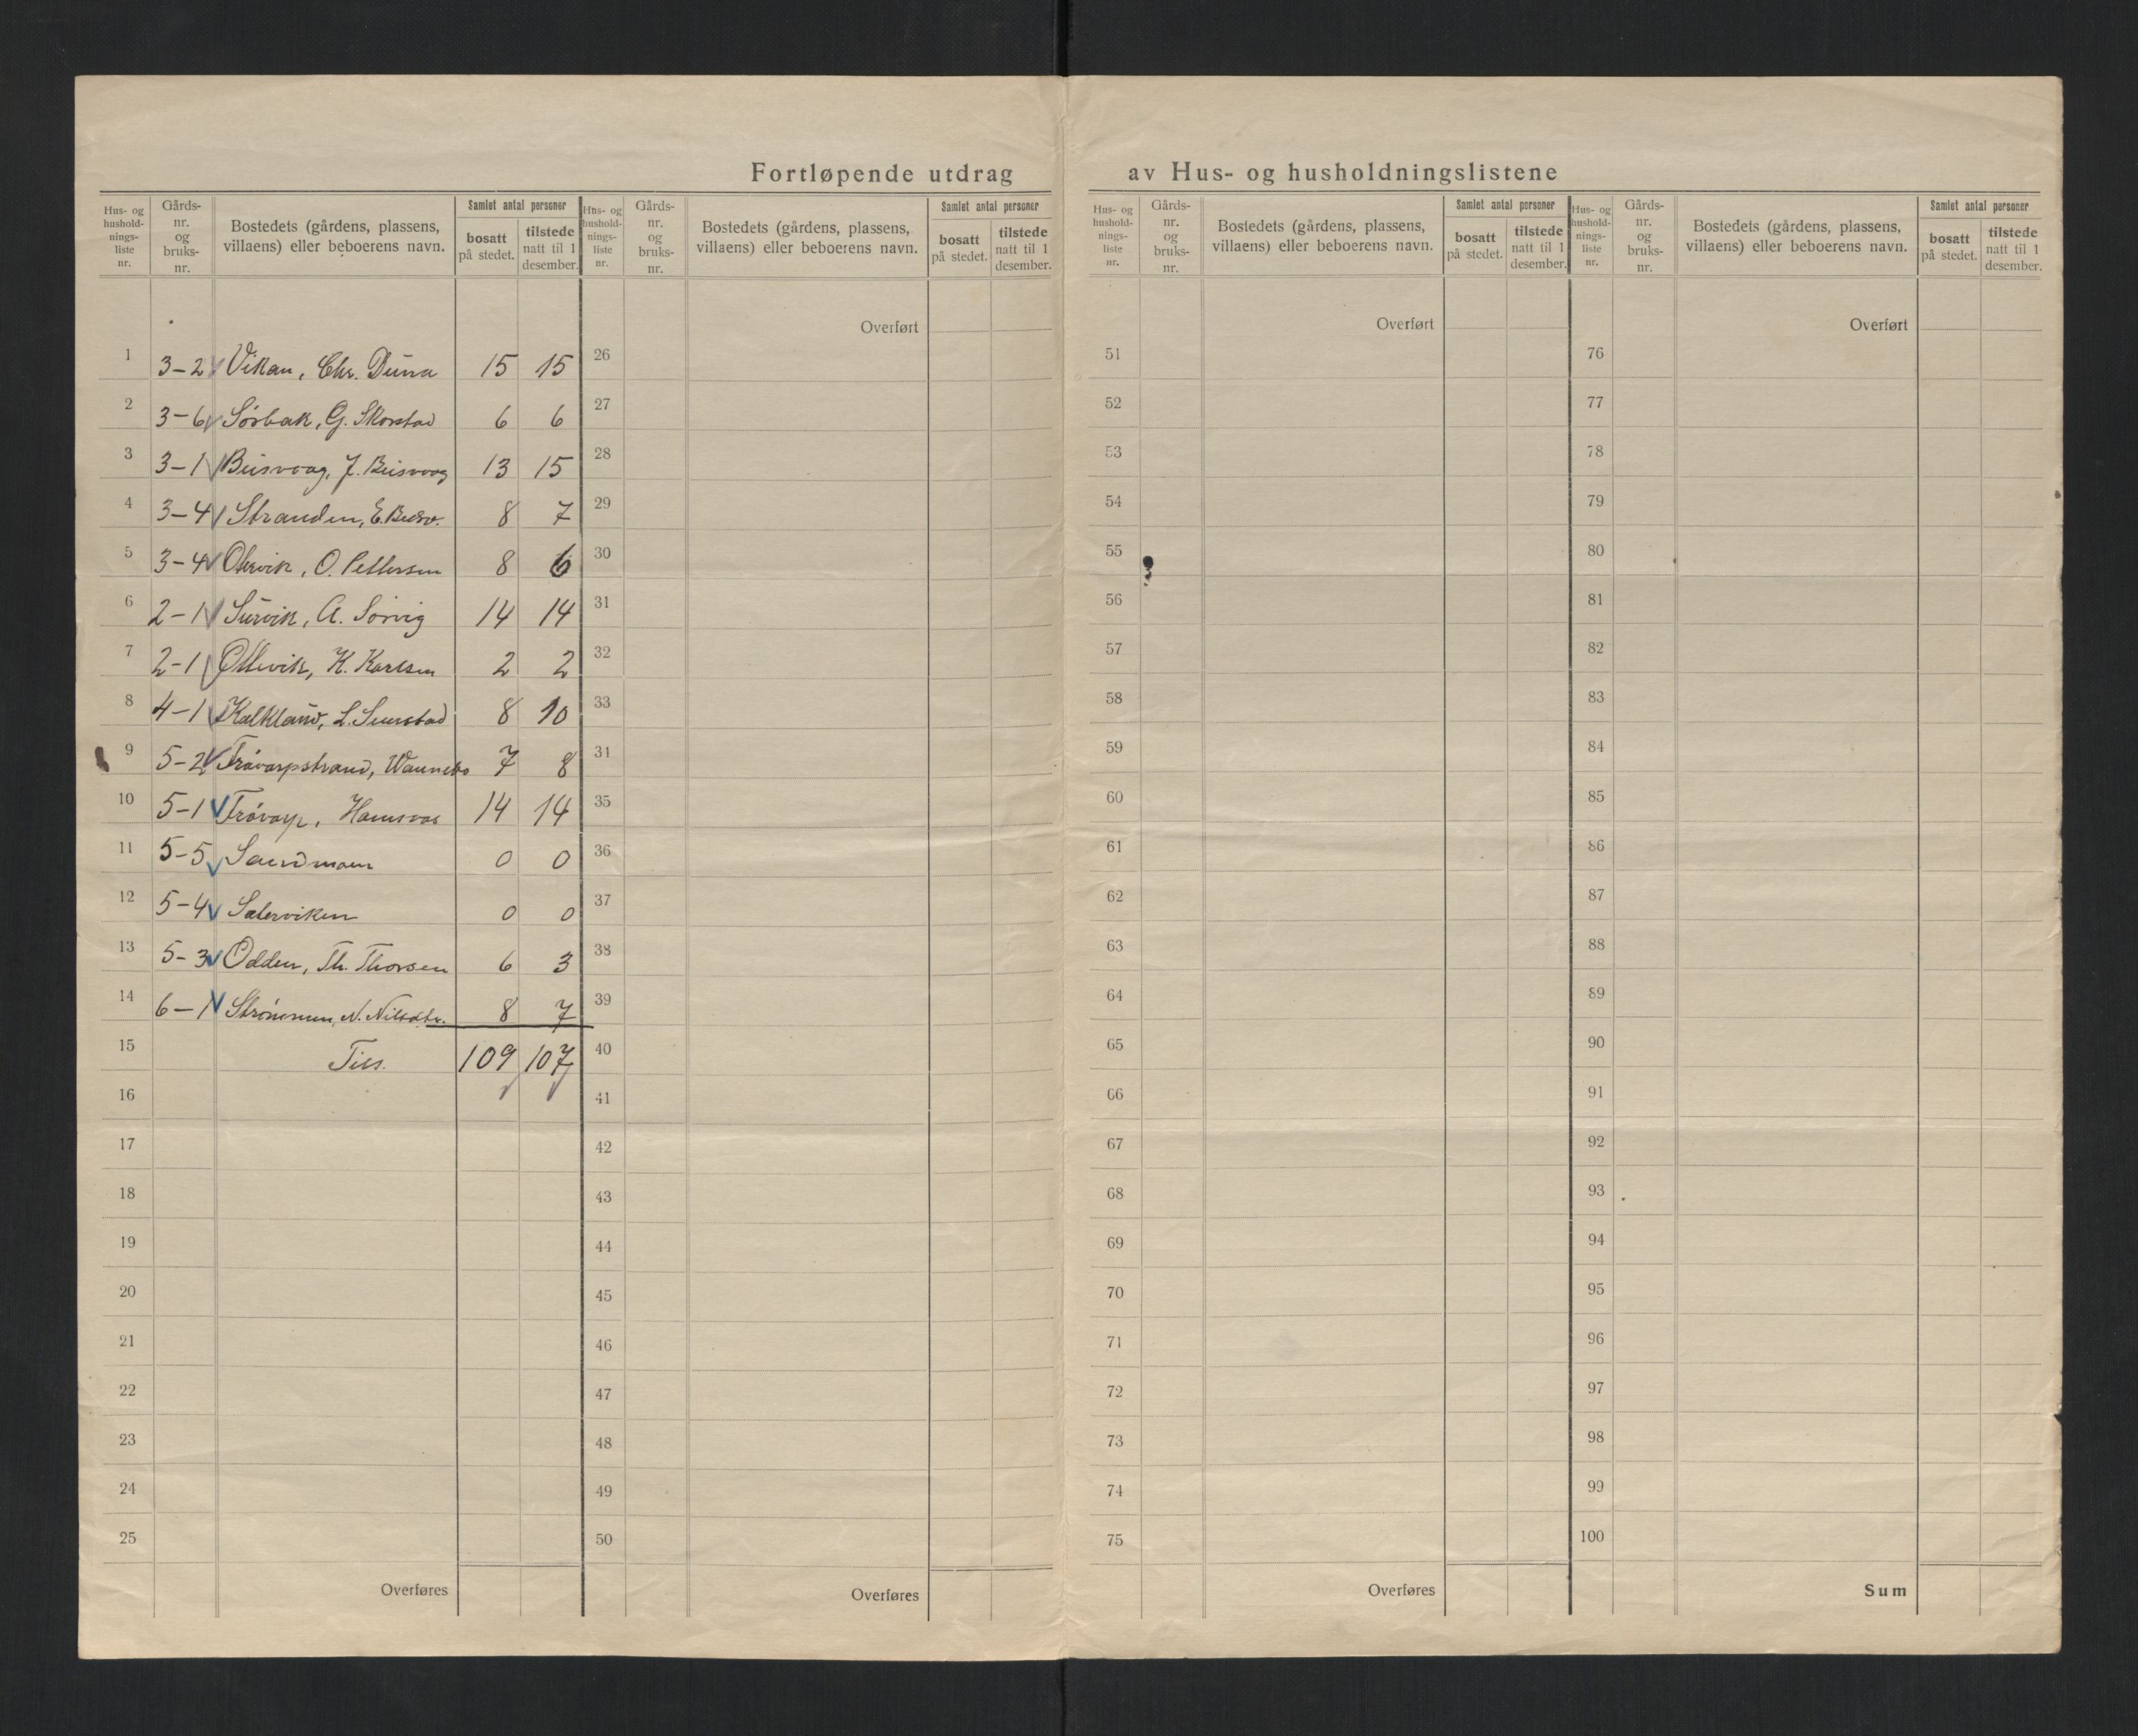 Fortløpende utdrag av Hus- og husholdningslistene
Hus- og hushold-nings-liste nr. Gårds-nr. og bruks-nr. Bostedets (gårdens, plassens, villaens) eller beboerens navn. Samlet antal personer bosatt på stedet. tilstede natt til 1 desember.
Hus- og hushold-nings-liste nr. Gårds-nr. og bruks-nr. Bostedets (gårdens, plassens, villaens) eller beboerens navn. Samlet antal personer bosatt på stedet. tilstede natt til 1 desember.
Hus- og hushold-nings-liste nr. Gårds-nr. og bruks-nr. Bostedets (gårdens, plassens, villaens) eller beboerens navn. Samlet antal personer bosatt på stedet. tilstede natt til 1 desember.
Hus- og hushold-nings-liste nr. Gårds-nr. og bruks-nr. Bostedets (gårdens, plassens, villaens) eller beboerens navn. Samlet antal personer bosatt på stedet. tilstede natt til 1 desember.
Overført Overført Overført
1 3-2 Vikan, Chr. Duna 15 15 26 51 76
2 3-6 Sørbak, G. Skorstad 6 6 27 52 77
3 3-1 Beisvaag, J. Beisvaag 13 15 28 53 78
4 3-4 Stranden, E. 8 7 29 54 79
5 3-4 O. Pettersen 8 6 30 55 80
6 2-1 Survik, A. Sørvig 14 14 31 56 81
7 2-1 K. Karlsen 2 2 32 57 82
8 4-1 Kalkland, L. 8 10 33 58 83
9 5-2 Frøvarpstrand, Wannebo 7 8 34 59 84
10 5-1 Frøvarp, Hamsvaas 14 14 35 60 85
11 5-5 Sandmoen 0 0 36 61 86
12 5-4 Saterviken 0 0 37 62 87
13 5-3 Odden, Th. Thorsen 6 3 38 63 88
14 6-1 Strømmen, N. 8 7 39 64 89
15 Tils. 109 107 40 65 90
16 41 66 91
17 42 67 92
18 43 68 93
19 44 69 94
20 45 70 95
21 46 71 96
22 47 72 97
23 48 73 98
24 49 74 99
25 50 75 100
Overføres Overføres Overføres Sum